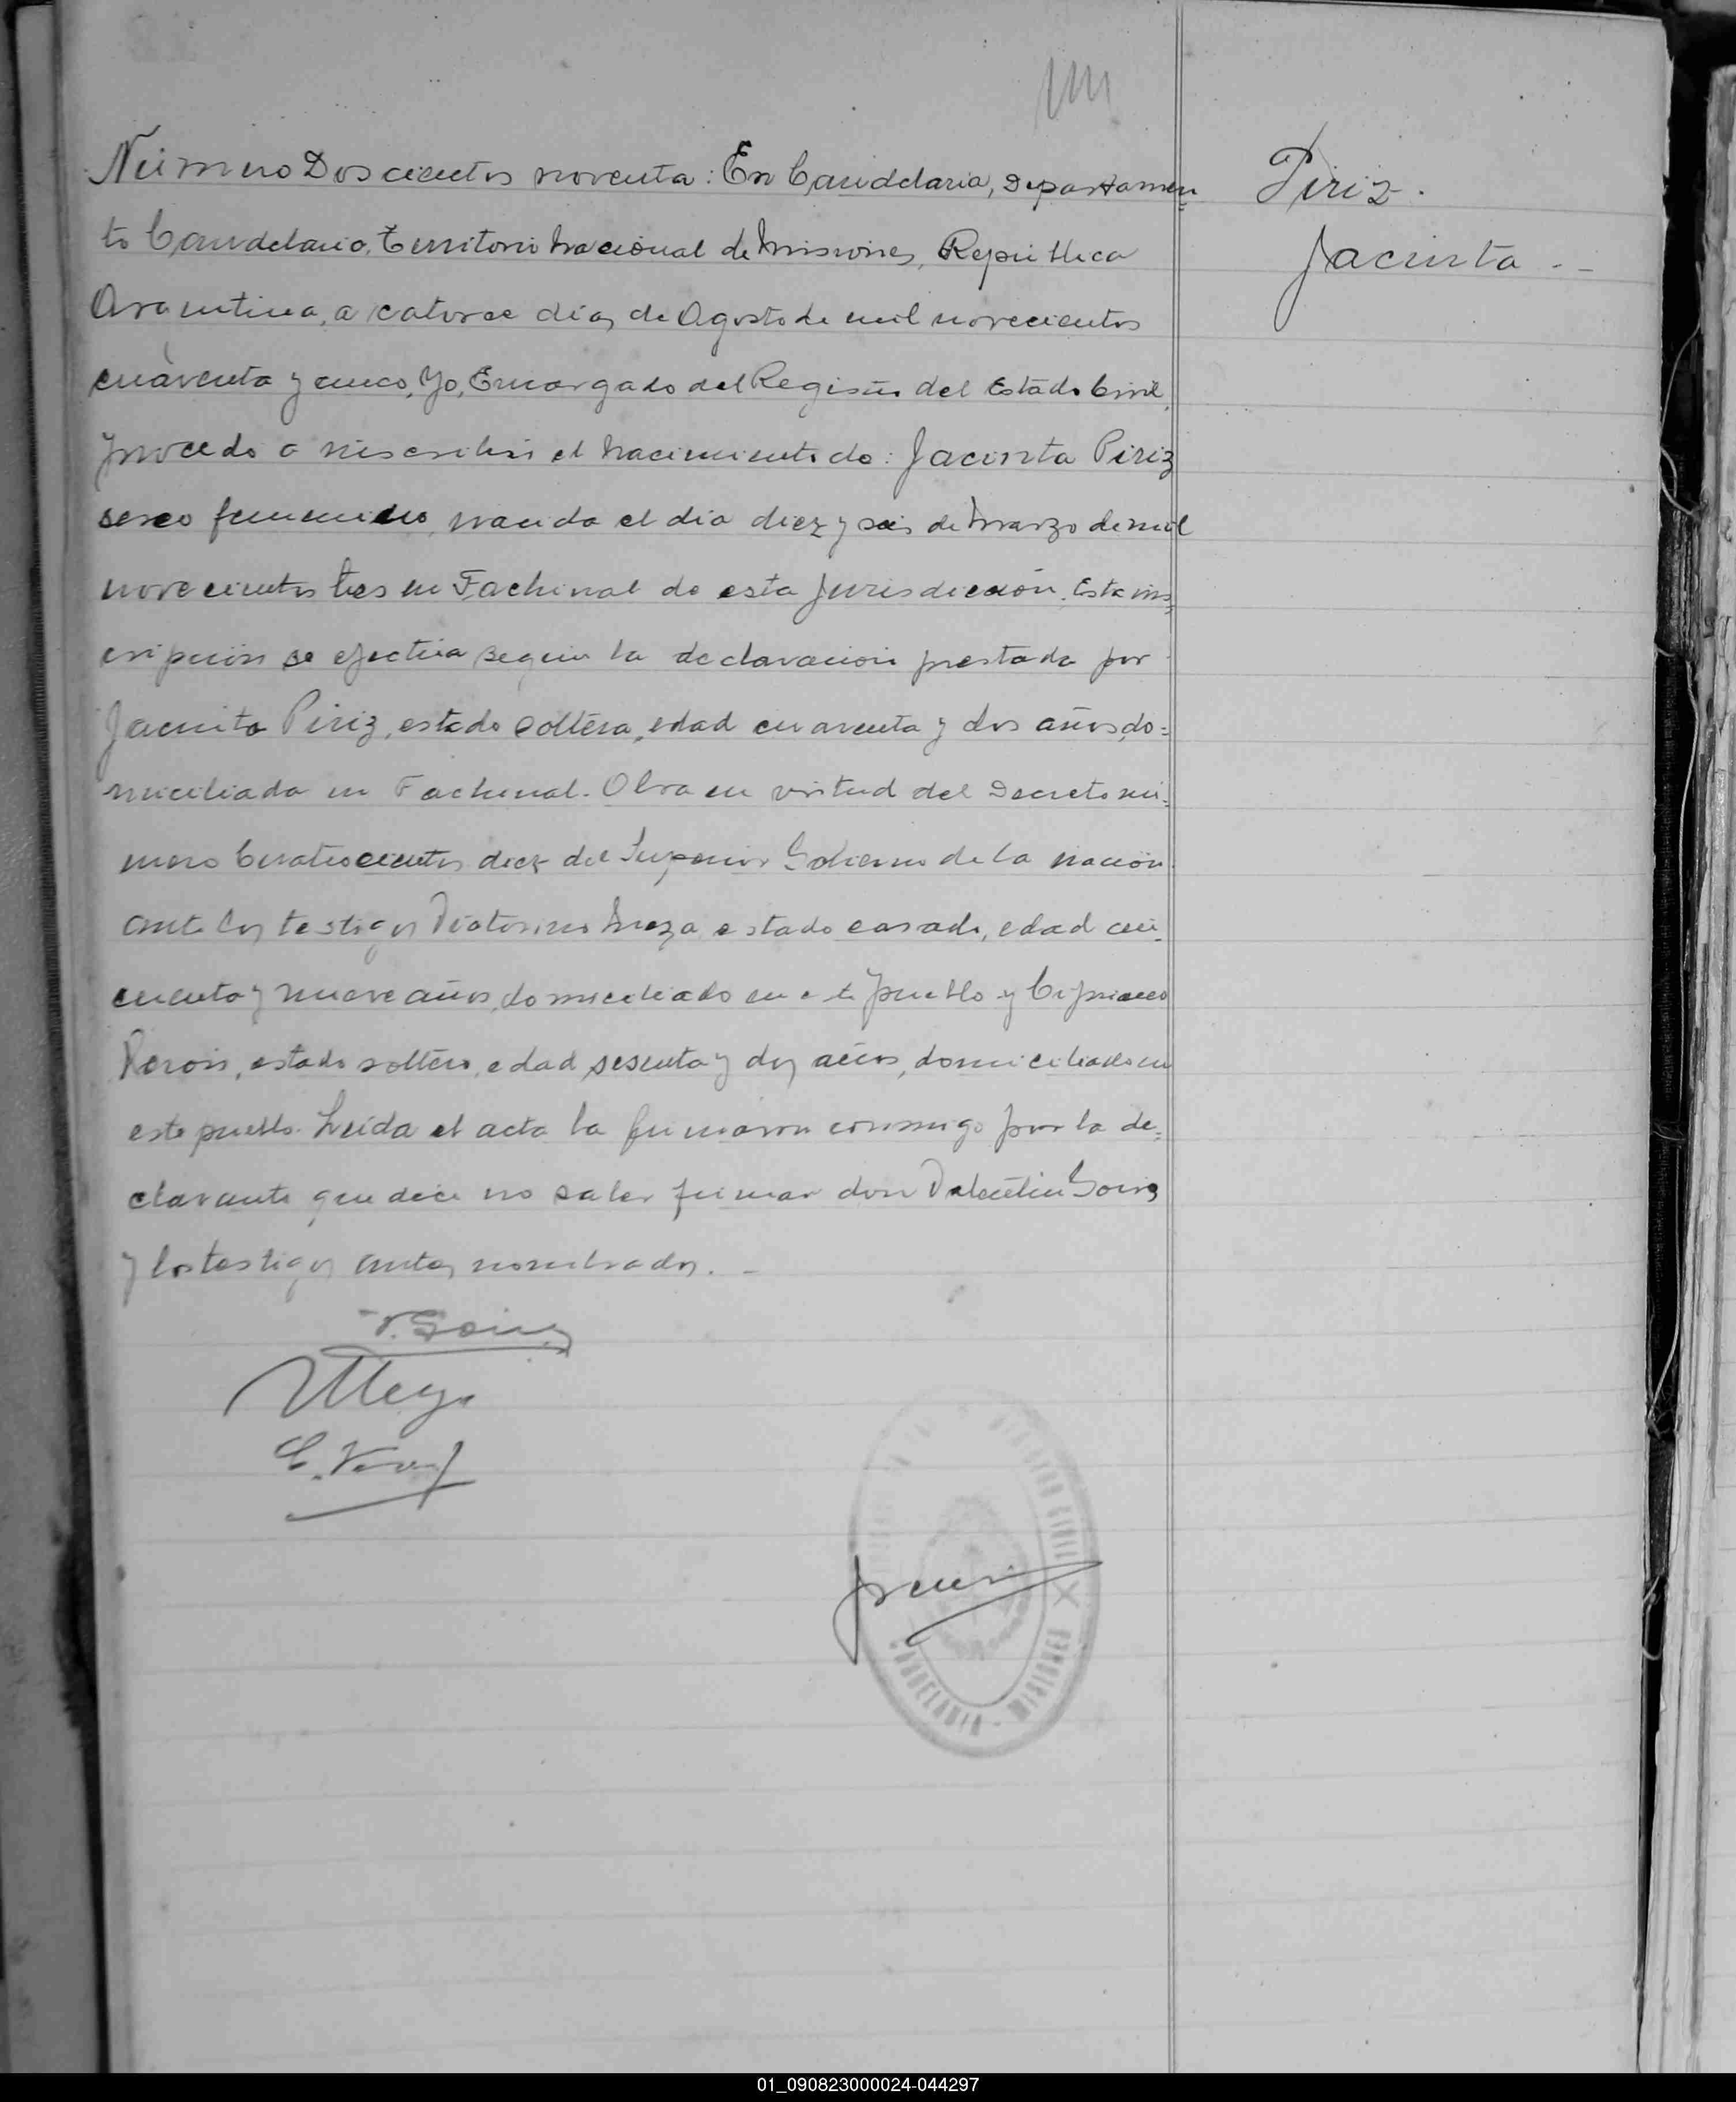 Número Doscientos noventa: En Candelaria, Departamen=
to Candelaria, Territorio Nacional de Misiones, República
Argentina, a catorce días de Agosto de mil novecientos
cuarenta y cinco, Yo, Encargado del Registro del Estado Civil,
procedo a inscribir el nacimiento de: Jacinta Piriz
sexo femenino, nacida el día diez y seis de Marzo de mil
novecientos tres en Fachinal de esta Jurisdicción. Esta ins=
cripción se efectúa según la declaración prestada por
Jacinta Piriz, estado soltera, edad cuarenta y dos años, do=
miciliada en Fachinal. Obra en virtud del Decreto nú=
mero Cuatrocientos diez del Superior Gobierno de la nación.
ante los testigos Victorino Meza, estado casado, edad cin=
cuenta y nueve años, domiciliado en este pueblo y Cipriano
estado soltero, edad sesenta y dos años, domiciliado en
este pueblo. Leída el acta la firmaron conmigo por la de=
clarante que dice no saber firmar don Valentín
y los testigos antes nombrados. -
Piriz.
Jacinta --
REGISTRO CIVIL
CANDELARIA - MISIONES
01_090823000024-044297